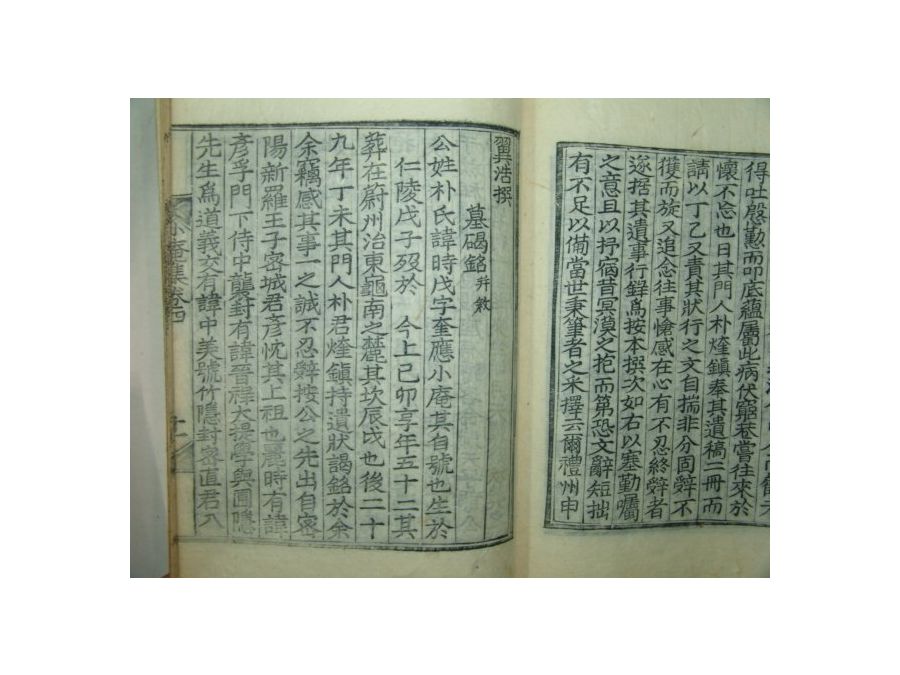 得吐慇懃而叩底蘊屬此病伏窮巷嘗往來於
懷不忘也日其門人朴煃鎮奉其遺稿二冊而
請以丁乙又責其狀行之文自揣非分固辭不
獲而旋又追念往事愴感在心有不忍終辭者
遂括其遺事行錄爲按本撰次如右以塞勤囑
之意且以抒宿昔冥漠之抱而第恐文辭短拙
有不足以備當世秉筆者之采擇云爾禮州申
翼浩撰
墓碣銘 幷敘
公姓朴氏諱時戊字奎應小庵其自號也生於
仁陵戊子歿於 今上己卯享年五十二其
葬在蔚州治東龜南之麓其坎辰戌也後二十
九年丁未其門人朴君煃鎮持遺狀謁銘於余
余竊感其事一之誠不忍辭按公之先出自密
陽新羅王子密城君彥忱其上祖也麗時有諱
彥孚門下侍中襲封有諱晉祥大提學與圃隱
先生爲道義交有諱中美號竹隱封密直君入
小庵集卷四
十一